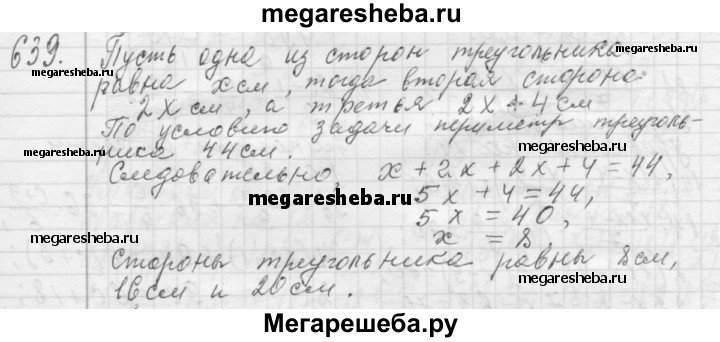 megaresheba.ru
639. Пусть одна из сторон треугольника
megaresheba.ru megaresheba.ru
равна x см, тогда вторая сторона
2x см, а третья 2x + 4 см
По условию задачи периметр треуголь-
ника 44 см.
megaresheba.ru megaresheba.ru
Следовательно, x + 2x + 2x + 4 = 44,
5x + 4 = 44,
megaresheba.ru
5x = 40,
x = 8
megaresheba.ru megaresheba.ru
Стороны треугольника равны 8 см,
16 см и 20 см.
Мегарешеба.ру